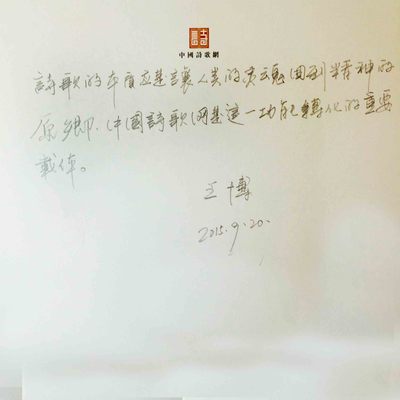 中國詩歌網
詩歌的本質应是讓人类的灵魂回到精神的
原鄉，中國詩歌网是這一功能轉化的重要
載体。
王博
2015.9.20.